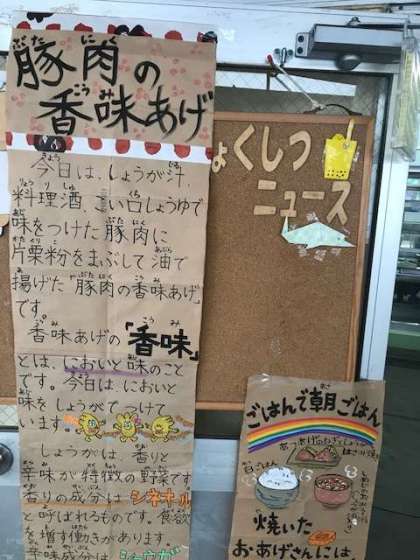 豚肉の
香味あげ
今日は、しょうが汁、
料理酒、こい口しょうゆで
味をつけた豚肉に
片栗粉をまぶして油で
揚げた"豚肉の香味あげ"
です。
香味あげの「香味」
とは、においと味のこと
です。今日は、においと
味をしょうがでつけて
います。
しょうがは、香りと
辛味が特徴の野菜です
香りの成分は シネオール
と呼ばれるものです。食欲
を増す働きがあります。
辛味成分は
ょくしつ
ニュース
ごはんで朝ごはん
白ごはん
焼いた
おあげさんには